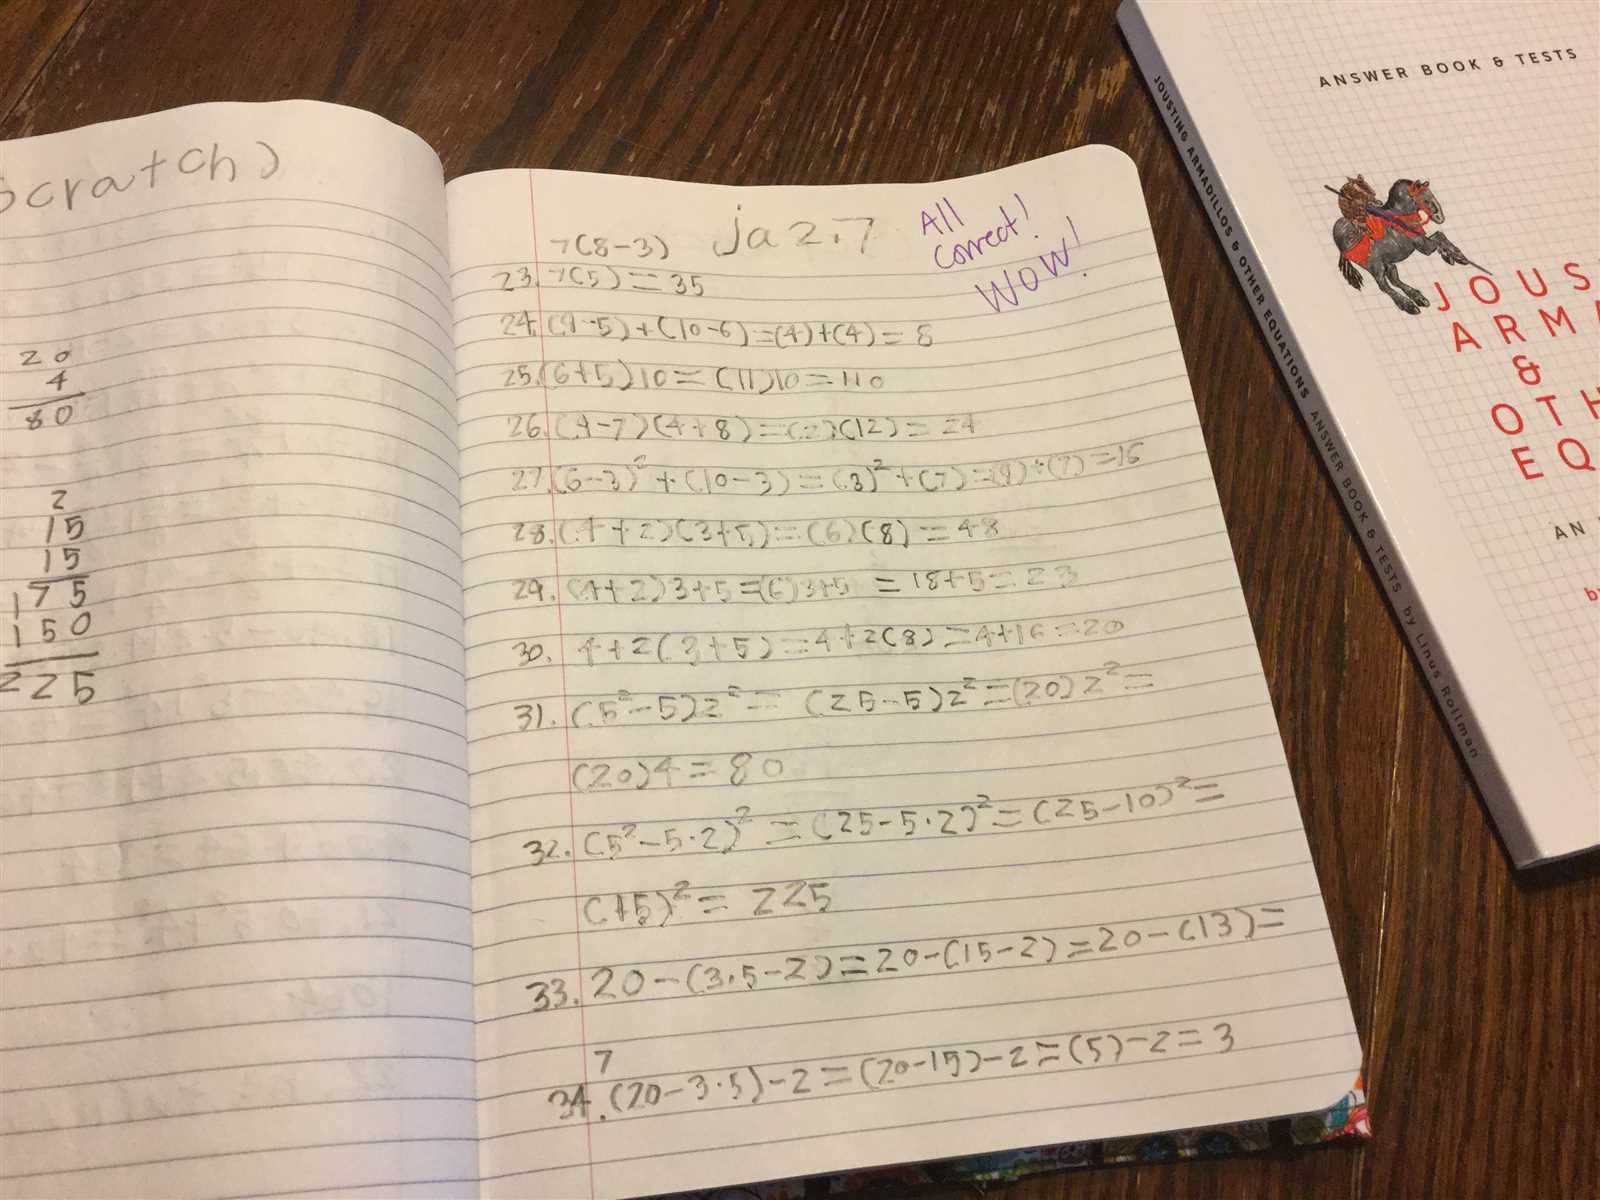 Scratch)
20
4
80
2
15
15
175
150
225
ja 2.7
All
Correct!
WOW!
7(8-3)
23. 7(5)=35
24. (9-5)+(10-6)=(4)+(4)=8
25. (6+5)10=(11)10=110
26. (9-7)(4+8)=(2)(12)=24
27. (6-3)²+(10-3)=(3)²+(7)=(9)+(7)=16
28. (4+2)(3+5)=(6)(8)=48
29. (4+2)3+5=(6)3+5 =18+5=23
30. 4+2(3+5)=4+2(8)=4+16=20
31. (5²-5)2²= (25-5)2²=(20)2²=
(20)4=80
32. (5²-5·2)²=(25-5·2)²=(25-10)²=
(15)²= 225
33. 20-(3·5-2)=20-(15-2)=20-(13)=
7
34. (20-3·5)-2=(20-15)-2=(5)-2=3
JOUSTING ARMADILLOS & OTHER EQUATIONS ANSWER BOOK & TESTS by Linus Rollman
ANSWER BOOK & TESTS
JOUS
ARMA
&
OTH
EQ
AN
b